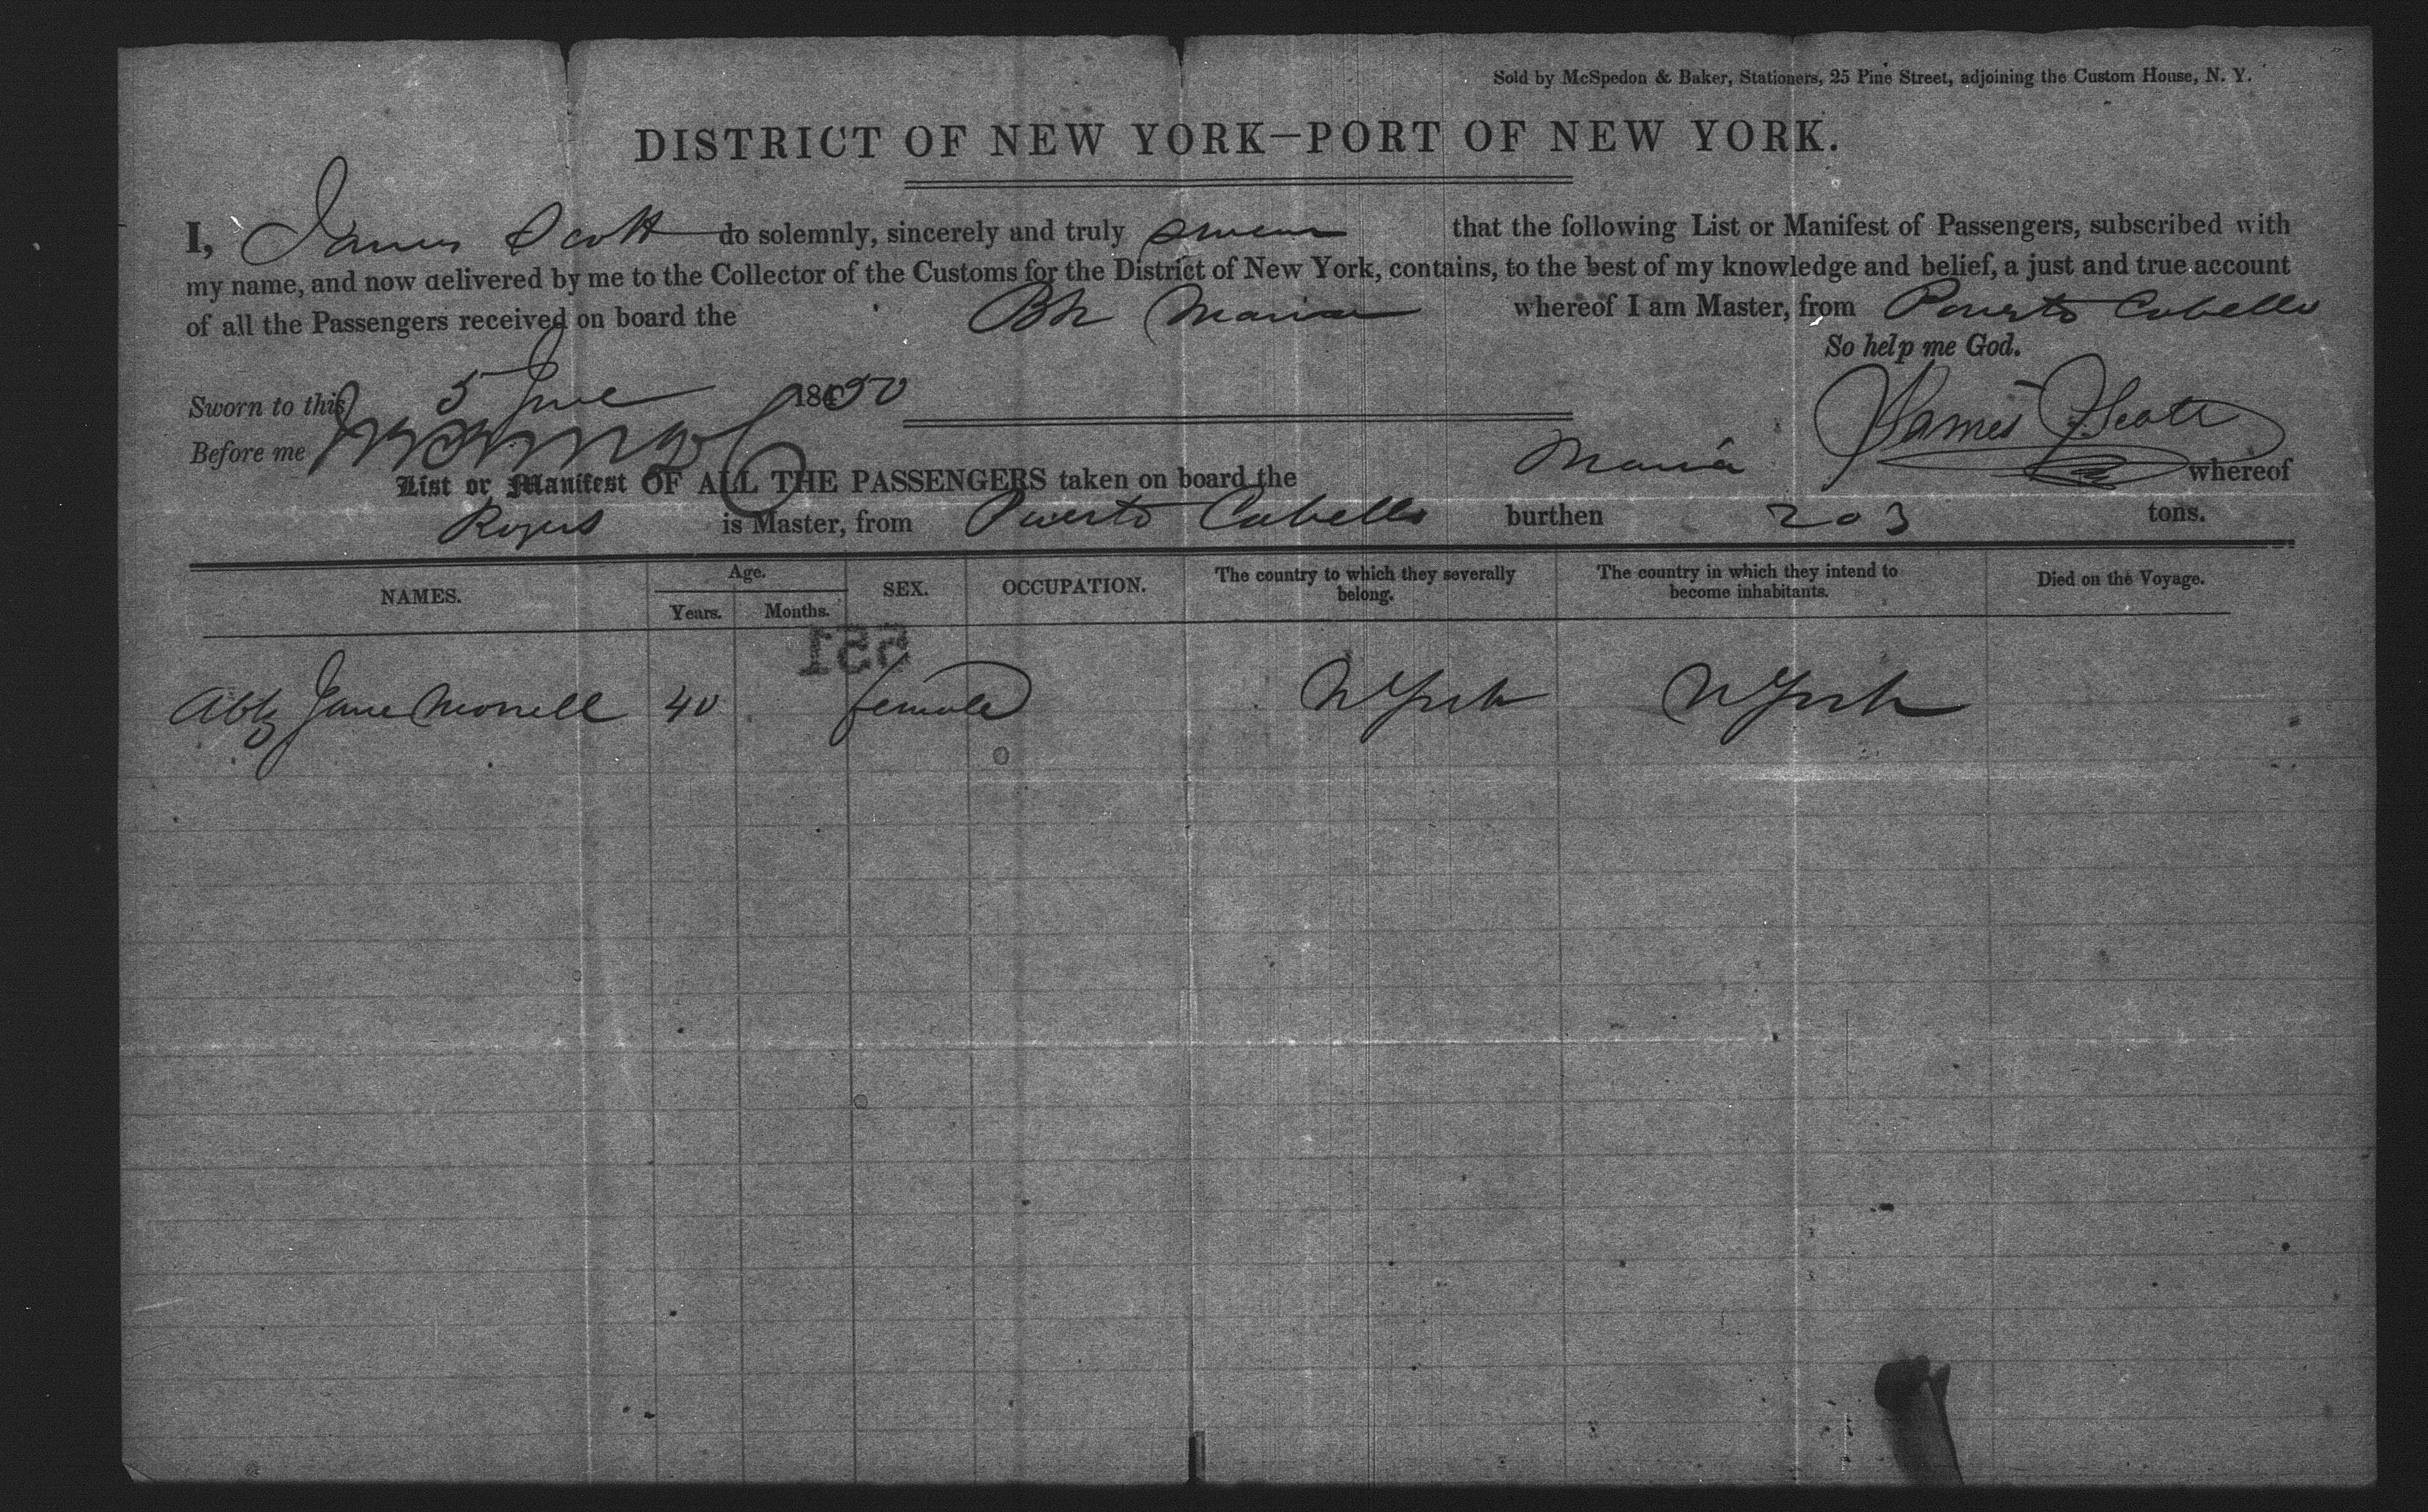 Sold by McSpedon & Baker, Stationers, 25 Pine Street, adjoining the Custom House, N. Y.
DISTRICT OF NEW YORK—PORT OF NEW YORK.
I, James Scott do solemnly, sincerely and truly swear that the following List or Manifest of Passengers, subscribed with
my name, and now delivered by me to the Collector of the Customs for the District of New York, contains, to the best of my knowledge and belief, a just and true account
of all the Passengers received on board the Maria whereof I am Master, from Puerto Cabello
So help me God.
Sworn to this 5 June 1850
James Scott
Before me
List or Manifest OF ALL THE PASSENGERS taken on board the Maria whereof
Rogers is Master, from Puerto Cabello burthen 203 tons.
NAMES. Age. Years. Months. SEX. OCCUPATION. The country to which they severally belong. The country in which they intend to become inhabitants. Died on the Voyage.
551
Abby Jane Morrell 40 female N York N York